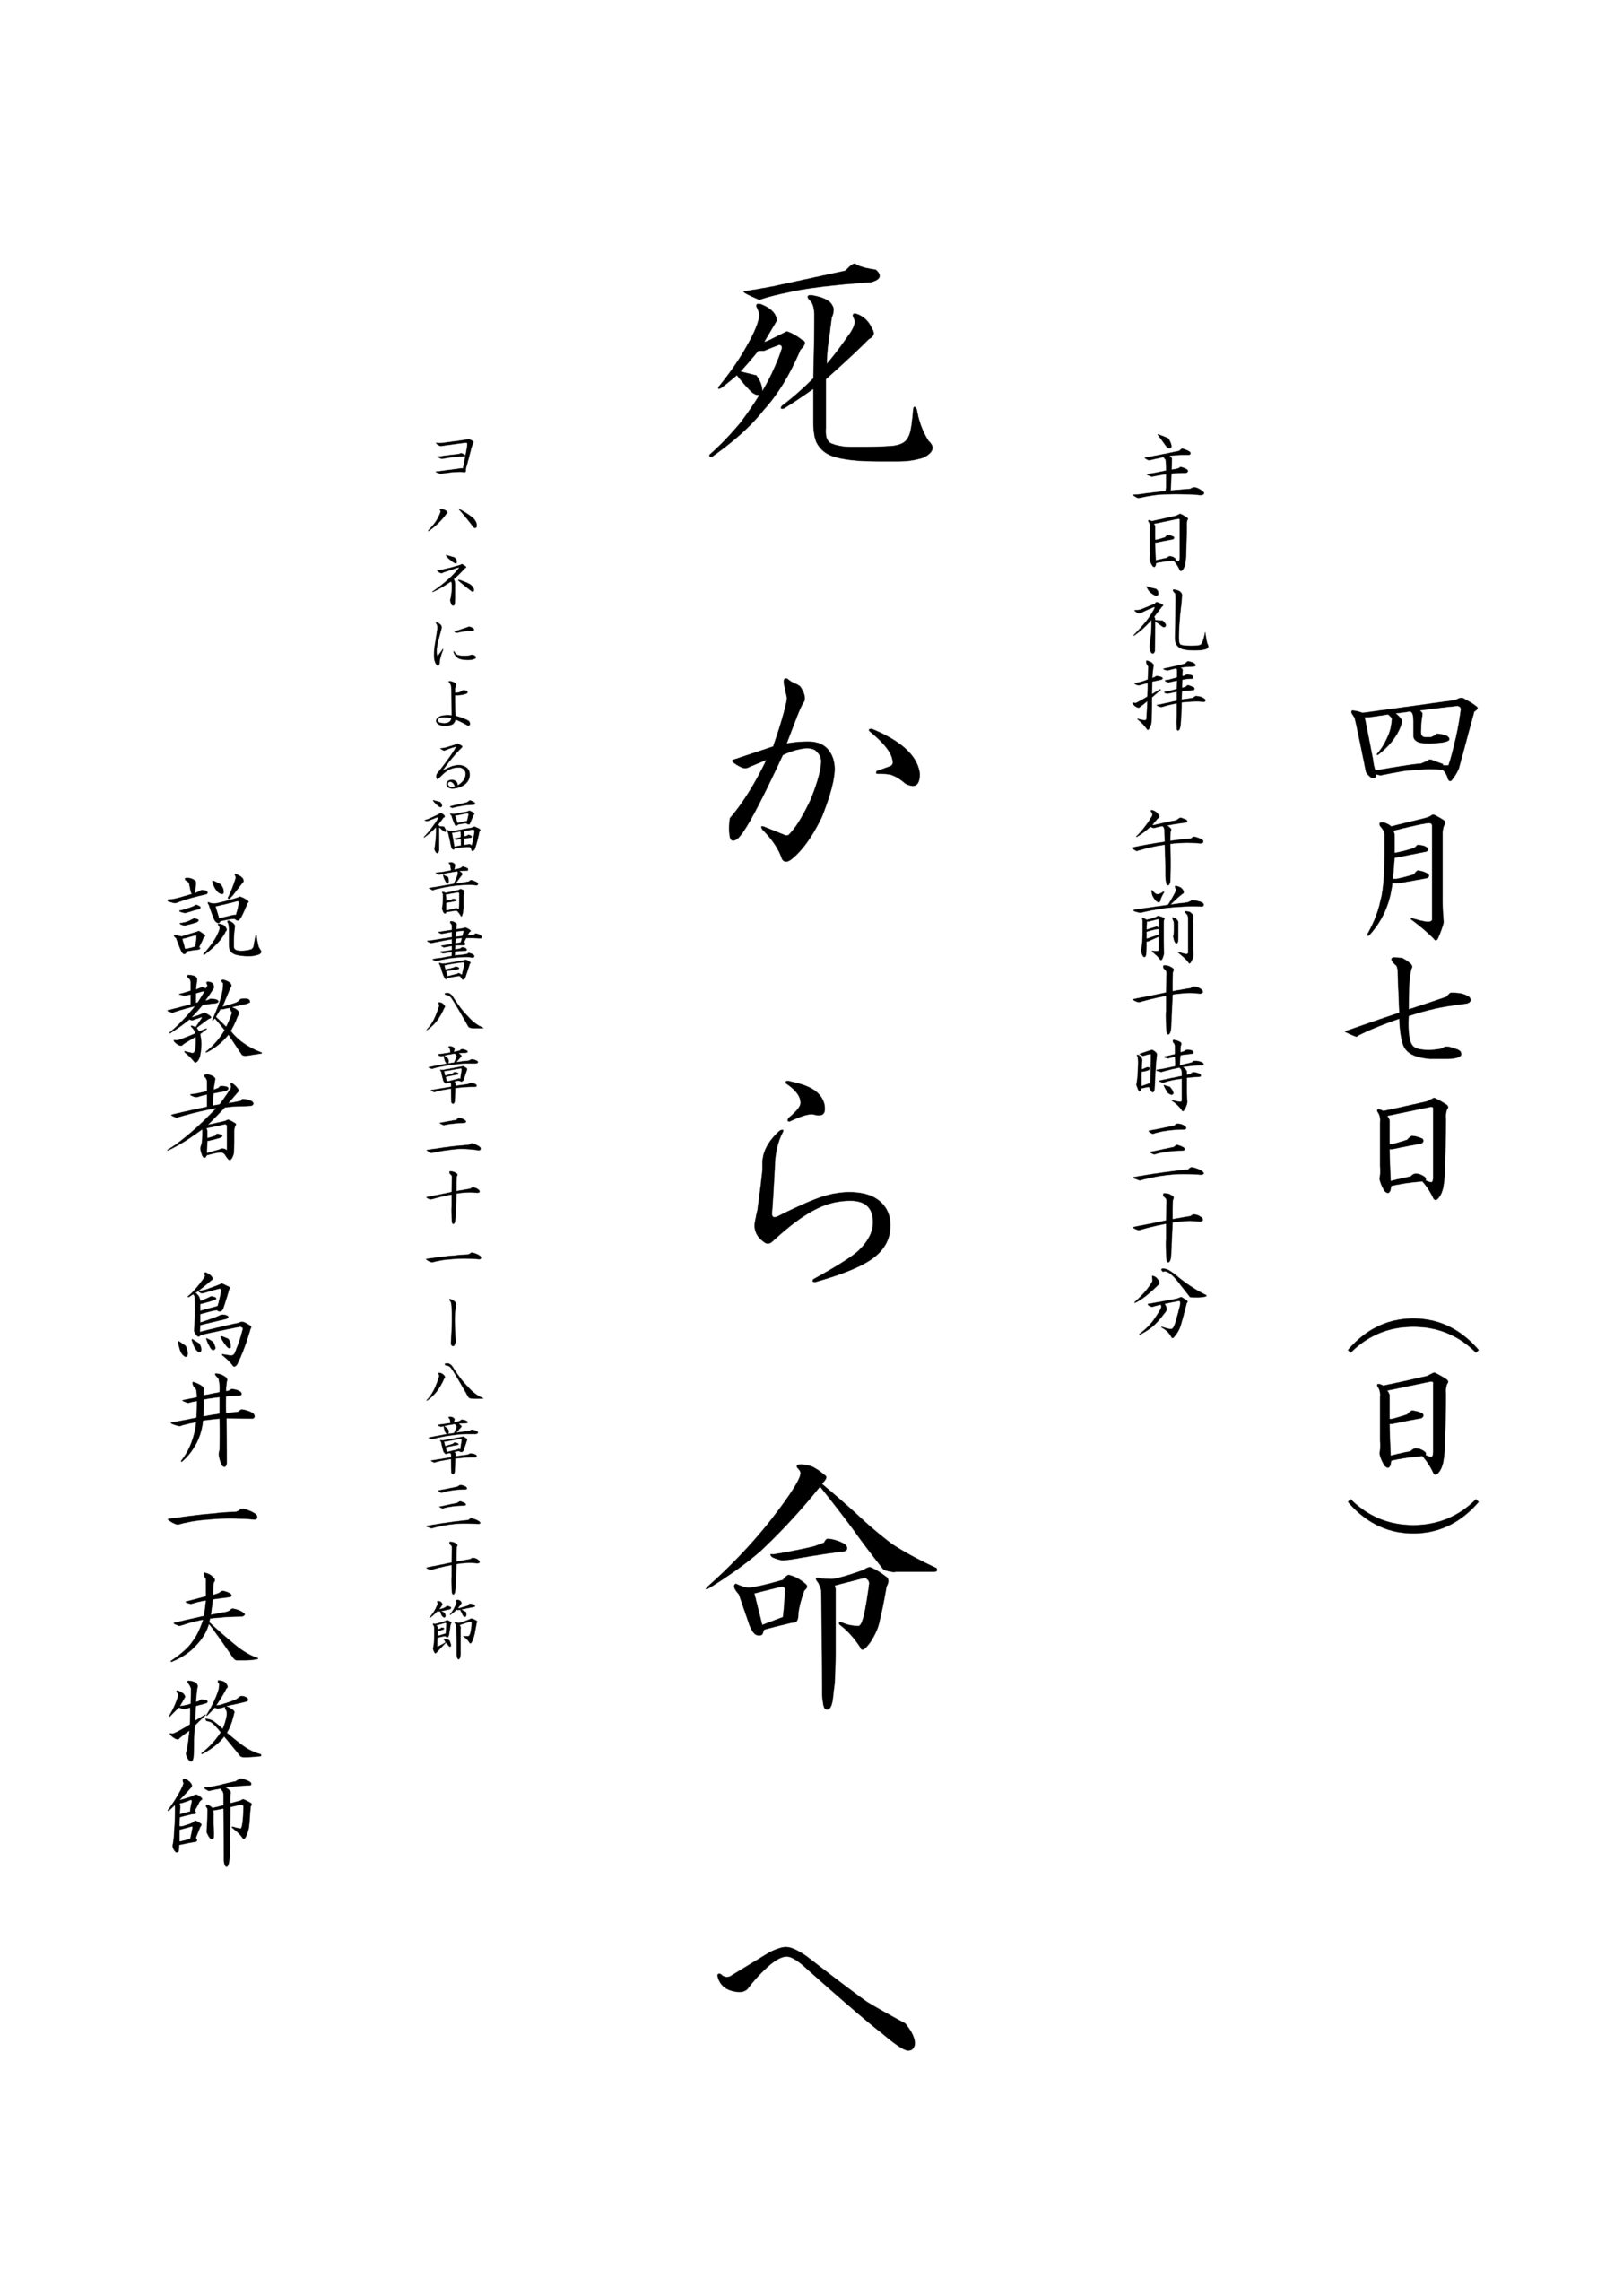 四月七日(日)
主日礼拝 午前十時三十分
死からら命へ
ヨハネによる福音書八章二十一ー八章三十節
説教者 鳥井一夫牧師